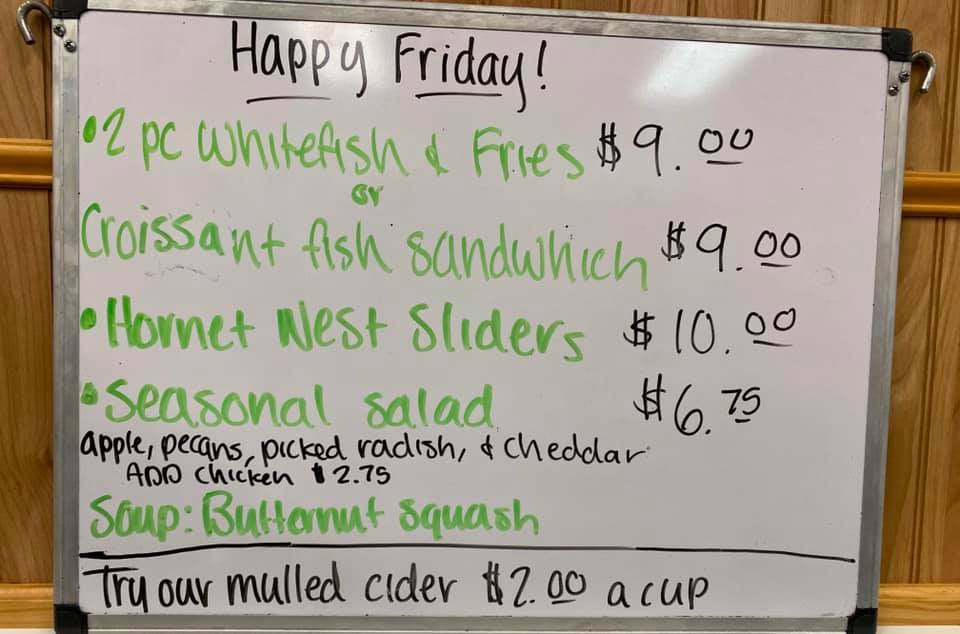 Happy Friday!
• 2 pc Whitefish & Fries $9.00
or
Croissant fish sandwhich $9.00
• Hornet Nest Sliders $10.00
• Seasonal salad $6.75
apple, pecans, picked radish, & cheddar
ADD chicken $2.75
Soup: Butternut squash
Try our mulled cider $2.00 a cup